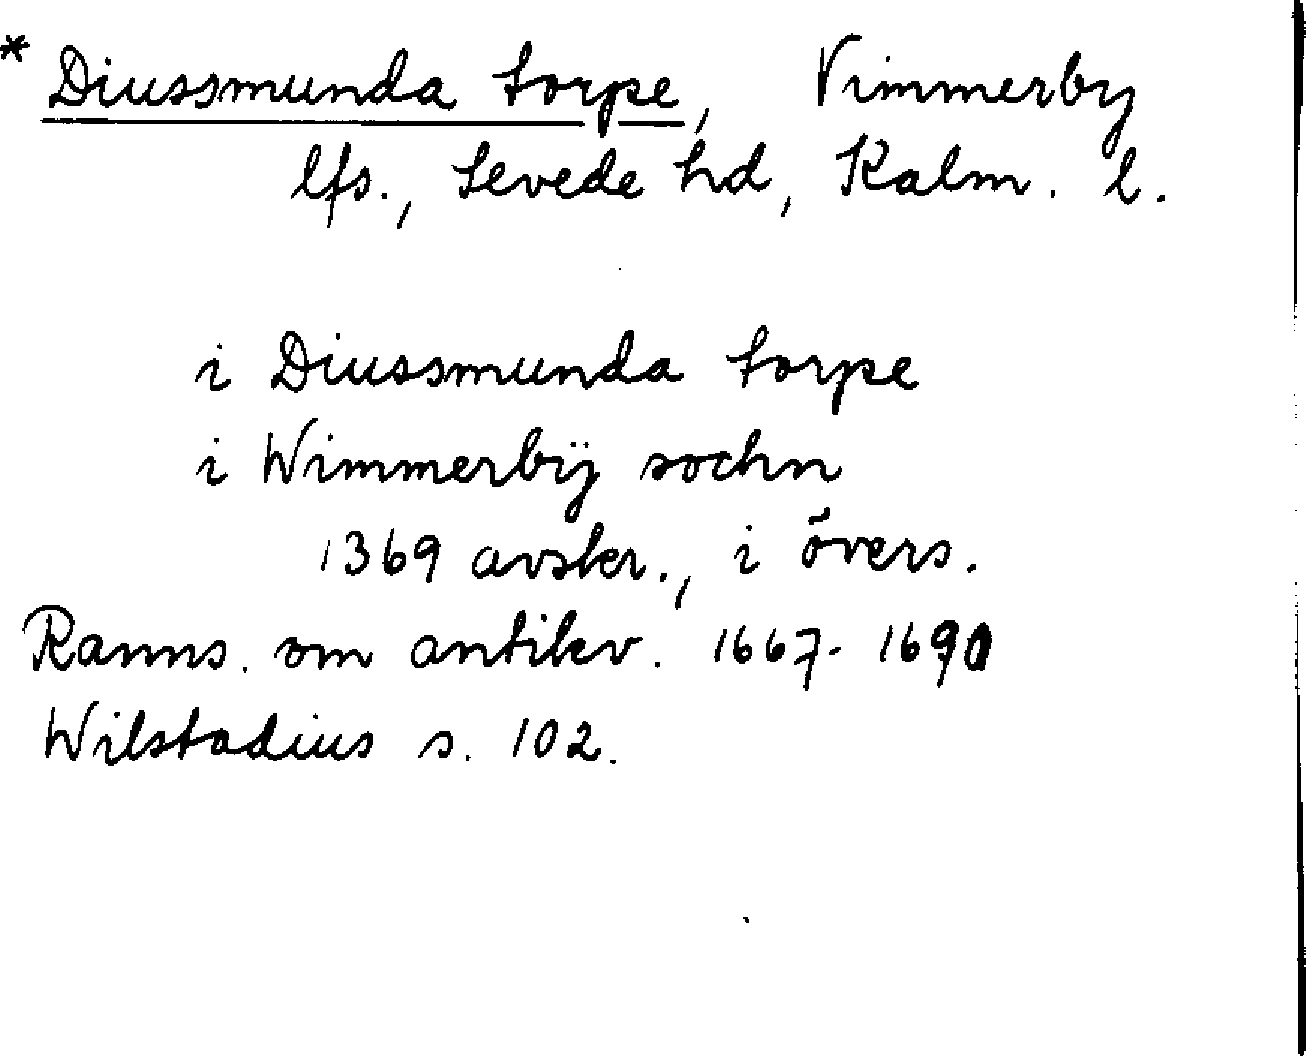 * Diussmunda torpe, Vimmerby
lfs., Sevede hd, Kalm. l.
i Diussmunda torpe
i Wimmerbÿ sochn
1369 avskr., i övers.
Ranns. om antikv. 1667-1690
Wilstadius s. 102.